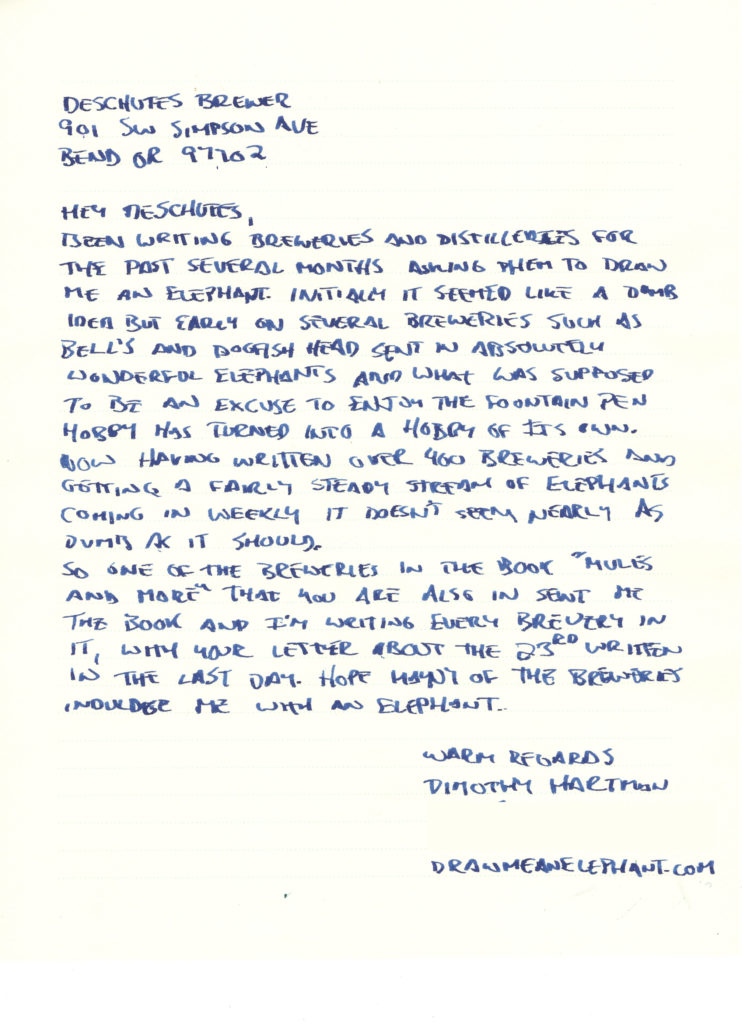 DESCHUTES BREWER
901 SW SIMPSON AVE
BEND OR 97702
HEY DESCHUTES,
BEEN WRITING BREWERIES AND DISTILLERIES FOR
THE PAST SEVERAL MONTHS ASKING THEM TO DRAW
ME AN ELEPHANT. INITIALLY IT SEEMED LIKE A DUMB
IDEA BUT EARLY ON SEVERAL BREWERIES SUCH AS
BELL'S AND DOGFISH HEAD SENT IN ABSOLUTELY
WONDERFUL ELEPHANTS AND WHAT WAS SUPPOSED
TO BE AN EXCUSE TO ENJOY THE FOUNTAIN PEN
HOBBY HAS TURNED INTO A HOBBY OF ITS OWN.
NOW HAVING WRITTEN OVER 400 BREWERIES AND
GETTING A FAIRLY STEADY STREAM OF ELEPHANTS
COMING IN WEEKLY IT DOESN'T SEEM NEARLY AS
DUMB AS IT SHOULD.
SO ONE OF THE BREWERIES IN THE BOOK "MULES
AND MORE" THAT YOU ARE ALSO IN SENT ME
THE BOOK AND I'M WRITING EVERY BREWERY IN
IT, WITH YOUR LETTER ABOUT THE 23RD WRITTEN
IN THE LAST DAY. HOPE OF THE BREWERIES
ME WITH AN ELEPHANT..
WARM REGARDS
DIMOTHY HARTMAN
DRAWMEANELEPHANT.COM